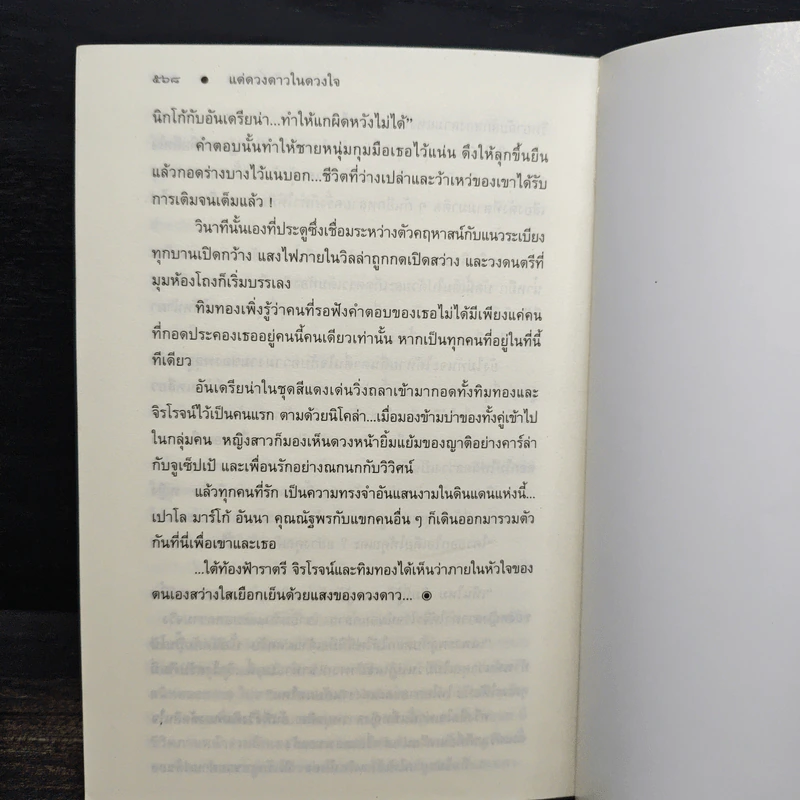 ๕๖๘ ● แด่ดวงดาวในดวงใจ
นิกโก้กับอันเดรียน่า...ทำให้แกผิดหวังไม่ได้”
คำตอบนั้นทำให้ชายหนุ่มกุมมือเธอไว้แน่น ดึงให้ลุกขึ้นยืน
แล้วกอดร่างบางไว้แนบอก...ชีวิตที่ว่างเปล่าและว้าเหว่ของเขาได้รับ
การเติมจนเต็มแล้ว !
วินาทีนั้นเองที่ประตูซึ่งเชื่อมระหว่างตัวคฤหาสน์กับแนวระเบียง
ทุกบานเปิดกว้าง แสงไฟภายในวิลล่าถูกกดเปิดสว่าง และวงดนตรีที่
มุมห้องโถงก็เริ่มบรรเลง
ทิมทองเพิ่งรู้ว่าคนที่รอฟังคำตอบของเธอไม่ได้มีเพียงแค่คน
ที่กอดประคองเธออยู่คนนี้คนเดียวเท่านั้น หากเป็นทุกคนที่อยู่ในที่นี้
ทีเดียว
อันเดรียน่าในชุดสีแดงเด่นวิ่งถลาเข้ามากอดทั้งทิมทองและ
จิรโรจน์ไว้เป็นคนแรก ตามด้วยนิโคล่า...เมื่อมองข้ามบ่าของทั้งคู่เข้าไป
ในกลุ่มคน หญิงสาวก็มองเห็นดวงหน้ายิ้มแย้มของญาติอย่างคาร์ล่า
กับจูเซ็ปเป้ และเพื่อนรักอย่างณกนกกับวิวิศน์
แล้วทุกคนที่รัก เป็นความทรงจำอันแสนงามในดินแดนแห่งนี้...
เปาโล มาร์โก้ อันนา คุณณัฐพรกับแขกคนอื่น ๆ ก็เดินออกมารวมตัว
กันที่นี่เพื่อเขาและเธอ
...ใต้ท้องฟ้าราตรี จิรโรจน์และทิมทองได้เห็นว่าภายในหัวใจของ
ตนเองสว่างไสวเยือกเย็นด้วยแสงของดวงดาว... ◉